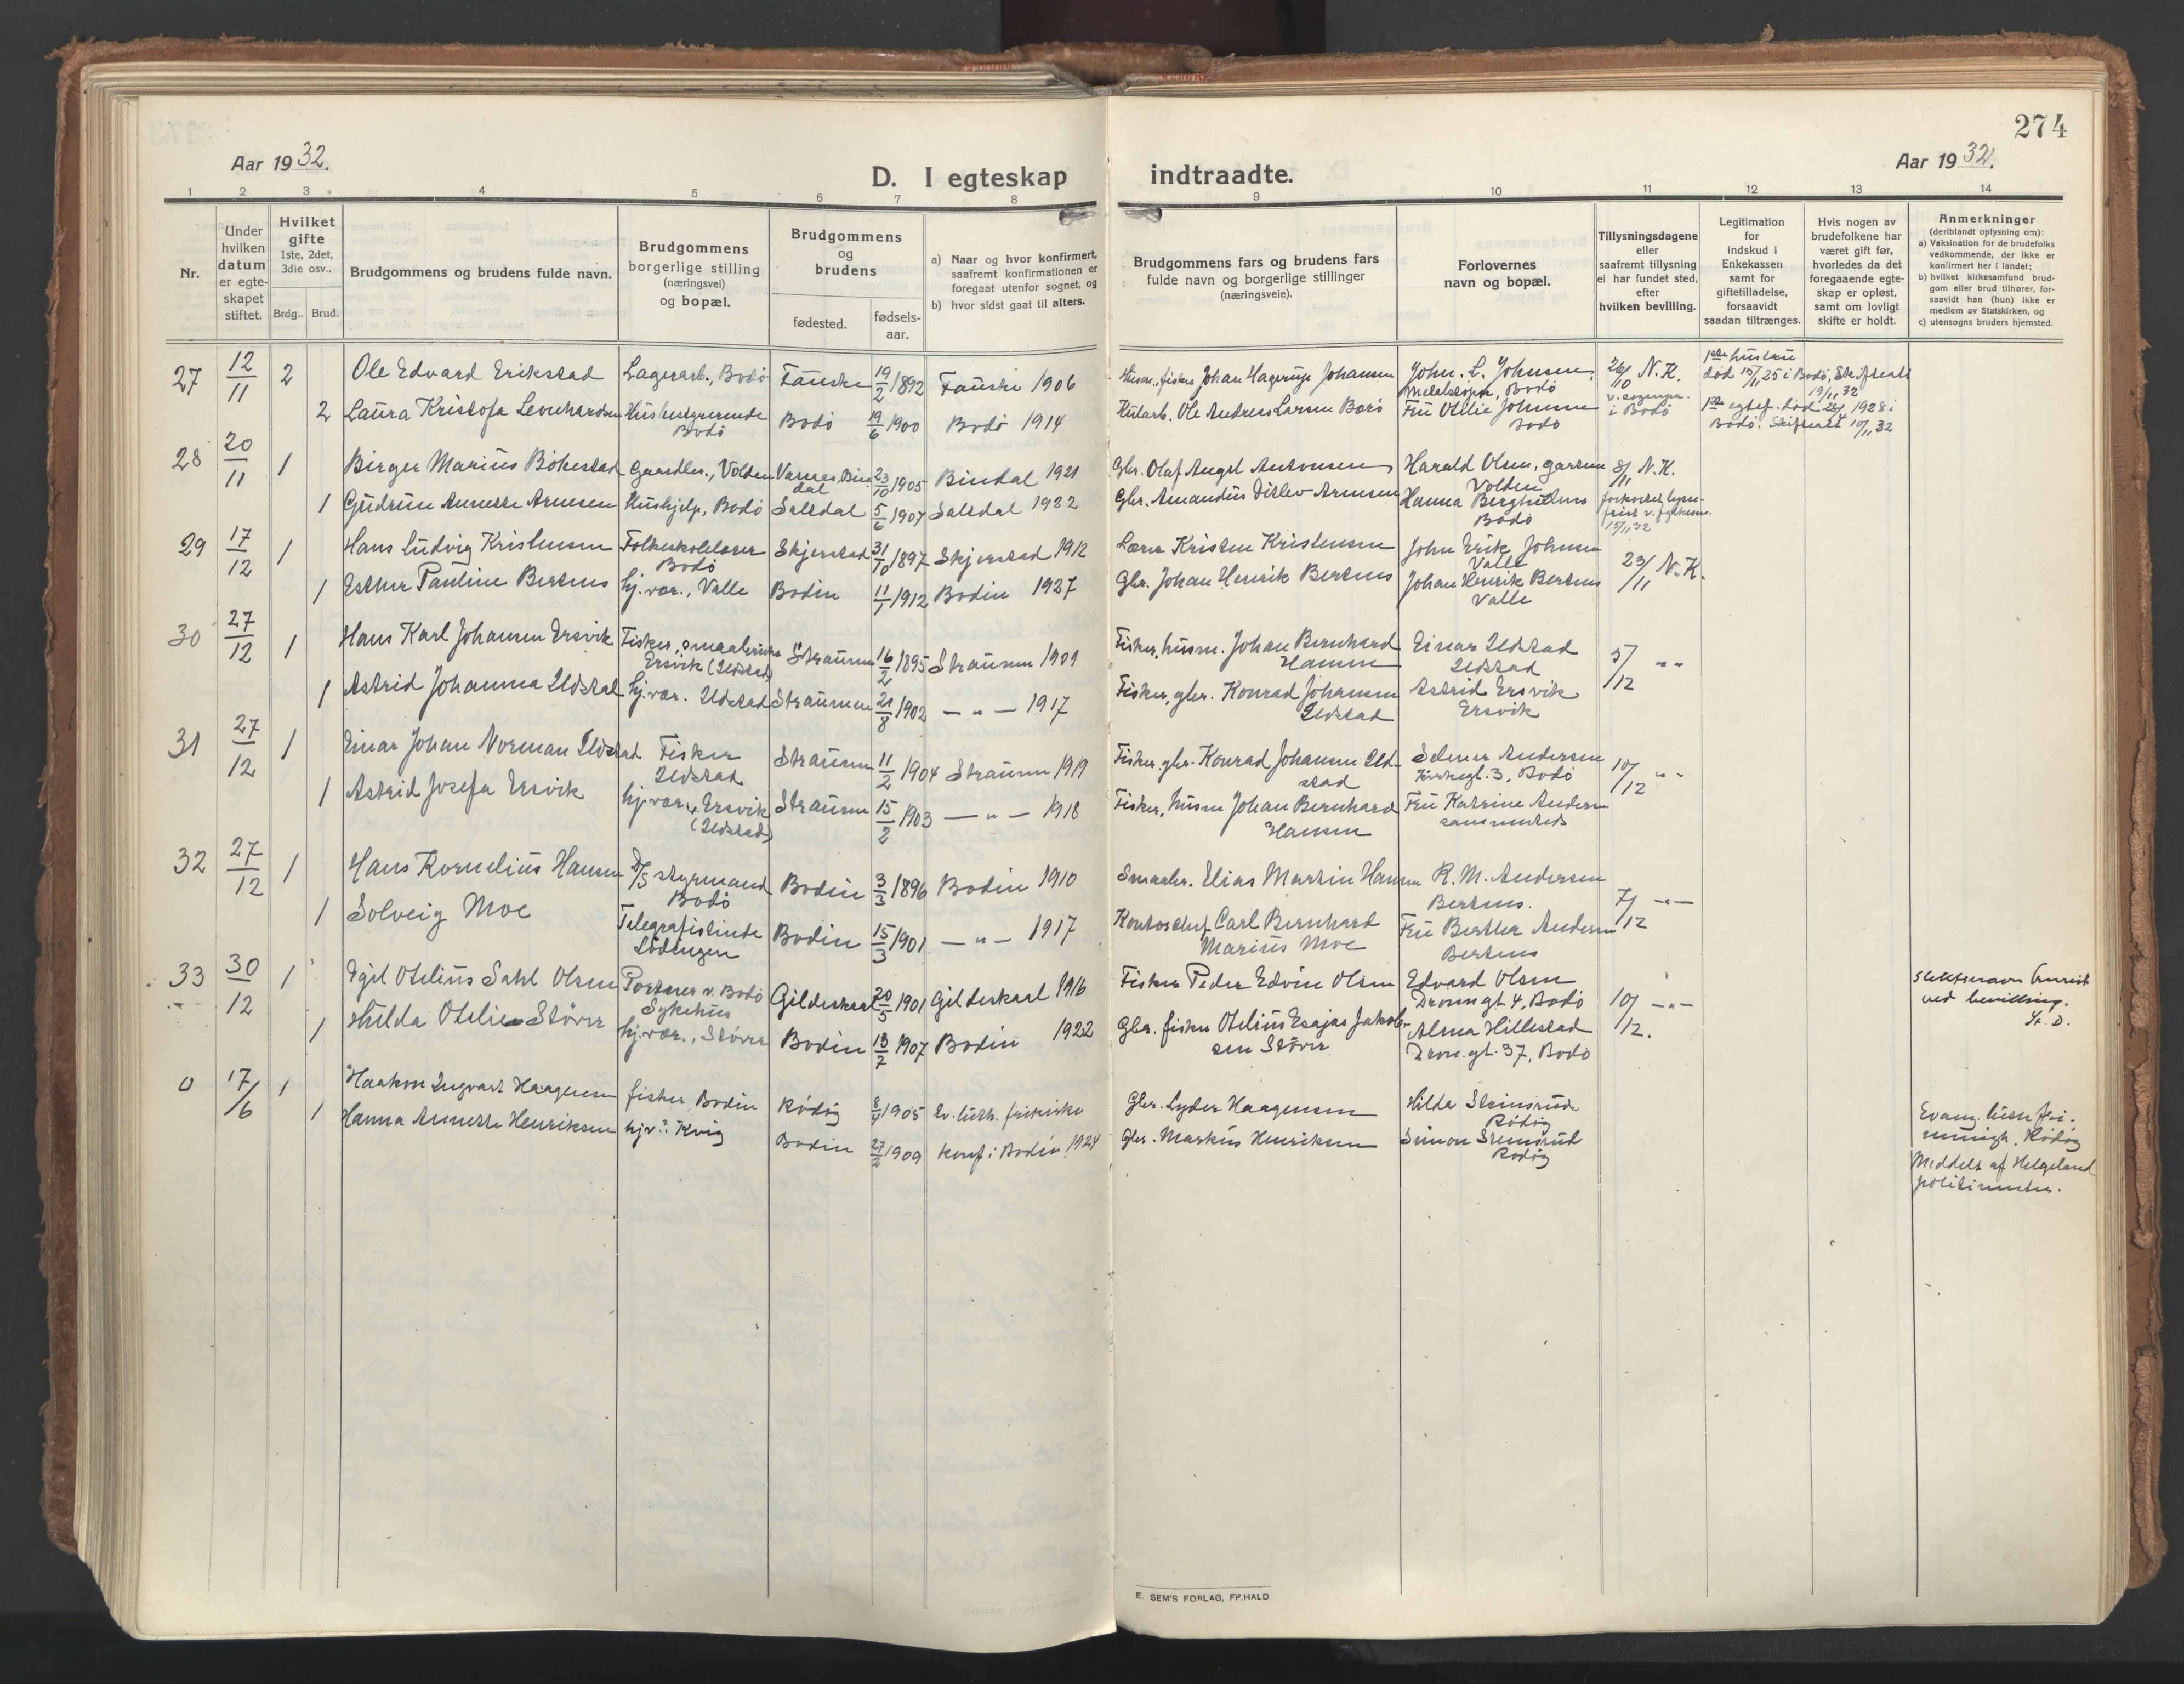 274
Aar 1932.
Aar 1932.
D. I egteskap indtraadte.
1 2 3 4 5 6 7 8 9 10 11 12 13 14
Nr.
Under hvilken datum er egte-skapet stiftet.
Hvilket gifte 1ste, 2det, 3die osv..
Brdg.. Brud.
Brudgommens og brudens fulde navn.
Brudgommens borgerlige stilling (næringsvei) og bopæl.
Brudgommens og brudens
fødested. fødsels-aar.
a) Naar og hvor konfirmert, saafremt konfirmationen er foregaat utenfor sognet, og
b) hvor sidst gaat til alters.
Brudgommens fars og brudens fars fulde navn og borgerlige stillinger (næringsveie).
Forlovernes navn og bopæl.
Tillysningsdagene eller saafremt tillysning ei har fundet sted, efter hvilken bevilling.
Legitimation for indskud i Enkekassen samt for giftetilladelse, forsaavidt saadan tiltrænges.
Hvis nogen av brudefolkene har været gift før, hvorledes da det foregaaende egte-skap er opløst, samt om lovligt skifte er holdt.
Anmerkninger (deriblandt oplysning om):
a) Vaksination for de brudefolks vedkommende, der ikke er konfirmert her i landet;
b) hvilket kirkesamfund brud-gom eller brud tilhører, for-saavidt han (hun) ikke er medlem av Statskirken, og
c) utensogns bruders hjemsted.
27 12/11 2 Ole Edvard Erikstad Lagerarb., Bodö Fauske 19/2 1892 Fauske 1906 Husm., fisker Johan Hagerup Johansen John. L. Johnsen Bodö 26/10 N. K.
1ste hustru död 15/11 25 i Bodö, Skifteatt 19/11 32
2 Laura Kristofa Leonhardsen Husbestyrerinde Bodö Bodö 19/6 1900 Bodö 1914 Kularb. Ole Andreas Larsen Fru Otilie Johnsen Bodö i Bodö
1ste egtef. död 28/4 1928 i Bodö. Skifteatt 10/11 32
28 20/11 1 Birger Marius Bökestad Gaardbr., Volden Bindal 23/10 1905 Bindal 1921 Gbr. Olaf Angel Antonsen Harald Olsen, Volden 8/11 N. K.
1 Gudrun Annette Arnesen Hushjelp, Bodö Saltdal 5/6 1907 Saltdal 1922 Gbr. Amandus Ditlev Arnesen Hanna Bergholms Bodö 15/11 32
29 17/12 1 Hans Ludvig Kristensen Folkeskolelærer Bodö Skjerstad 31/10 1897 Skjerstad 1912 Lærer Kristen Kristensen John Erik Johnsen Valle 23/11 N. K.
1 Esther Pauline Bertnes hj. vær., Valle Bodin 11/1 1912 Bodin 1927 Gbr. Johan Henrik Bertnes Johan Henrik Bertnes Valle
30 27/12 1 Hans Karl Johansen Ersvik Fisker, smaabruker Ersvik (Ildstad) Straumen 16/2 1895 Straumen 1909 Fisker, husm. Johan Bernhard Hansen Einar Ildstad Ildstad 5/12 " "
1 Astrid Johanna Ildstad hj. vær. Ildstad Straumen 21/8 1902 — " — 1917 Fisker, gbr. Konrad Johansen Ildstad Astrid Ersvik Ersvik
31 27/12 1 Einar Johan Norman Ildstad Fisker Ildstad Straumen 11/2 1904 Straumen 1919 Fisker, gbr. Konrad Johansen Ildstad Selmer Andersen Kirkegt. 3, Bodö 10/12 " "
1 Astrid Josefa Ersvik hj. vær., Ersvik (Ildstad) Straumen 15/2 1903 — " — 1918 Fisker, husm Johan Bernhard Hansen Fru Katrine Andersen sammesteds
32 27/12 1 Hans Kornelius Hansen D/S styrmand Bodö Bodin 3/3 1896 Bodin 1910 Smaabr. Elias Martin Hansen R. M. Andersen Bertnes. 7/12 — " —
1 Solveig Moe Telegrafistinde Lödingen Bodin 15/3 1901 — " — 1917 Kontorchef Carl Bernhard Marius Moe Fru Berther Andersen Bertnes
33 30/12 1 Egil Otelius Sahl Olsen Portner v. Bodö Sykehus Gildeskaal 20/5 1901 Gildeskaal 1916 Fisker Peder Edvin Olsen Edvard Olsen Dronn.gt. 4, Bodö 10/12. — " —
ved bevilling.
1 Hilda Otelie Störer hj. vær., Störer Bodin 13/7 1907 Bodin 1922 Gbr. fisker Otelius Esajas Jakobsen Störer Alma Hillestad Dron.gt. 37, Bodö
0 17/6 1 Haakon Ingvart Haagensen fisker, Bodin Rödöy 8/4 1905 Ev. luth. frikirke Gbr. Lyder Haagensen Hilda Steinsrud Rödöy
1 Hanna Annette Henriksen Kvig Bodin 27/2 1909 konf. i Bodin 1924 Gbr. Markus Henriksen Simon Steinsrud Rödöy
Evang. luth fri-menigh. Rödöy
Middelt af Helgeland politimester.
E. SEM'S FORLAG, FR.HALD